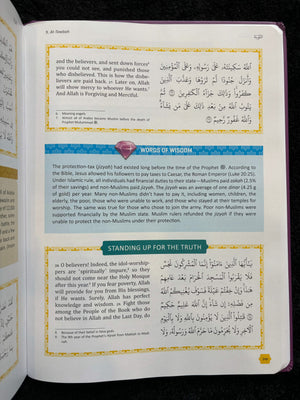 9. At-Tawbah
التوبة
and the believers, and sent down forces⁶
you could not see, and punished those
who disbelieved. This is how the disbe-
lievers are paid back. 27 Later on, Allah
will show mercy to whoever He wants.⁷
And Allah is Forgiving and Merciful.
ٱللَّهُ سَكِينَتَهُۥ عَلَىٰ رَسُولِهِۦ وَعَلَى ٱلْمُؤْمِنِينَ
وَأَنزَلَ جُنُودًا لَّمْ تَرَوْهَا وَعَذَّبَ ٱلَّذِينَ
كَفَرُوا۟ وَذَٰلِكَ جَزَآءُ ٱلْكَٰفِرِينَ ٢٦ ثُمَّ
يَتُوبُ ٱللَّهُ مِنۢ بَعْدِ ذَٰلِكَ عَلَىٰ مَن يَشَآءُ
وَٱللَّهُ غَفُورٌ رَّحِيمٌ ٢٧
6 Meaning angels.
7 Almost all of Arabia became Muslim before the death of
Prophet Muhammad ﷺ.
WORDS OF WISDOM
The protection-tax (jizyah) had existed long before the time of the Prophet ﷺ. According to the
Bible, Jesus allowed his followers to pay taxes to Caesar, the Roman Emperor (Luke 20:25).
Under Islamic rule, all individuals had financial duties to their state—Muslims paid zakah (2.5%
of their savings) and non-Muslims paid jizyah. The jizyah was an average of one dinar (4.25 g
of gold) per year. Many non-Muslims didn't have to pay it, including women, children, the
elderly, the poor, those who were unable to work, and those who stayed at their temples for
worship. The same was true for those who chose to join the army. Poor non-Muslims were
supported financially by the Muslim state. Muslim rulers refunded the jizyah if they were
unable to protect the non-Muslims under their authority.
STANDING UP FOR THE TRUTH
28 O believers! Indeed, the idol-worship-
pers are ˹spiritually˺ impure,⁸ so they
should not come near the Holy Mosque
after this year.⁹ If you fear poverty, Allah
will provide for you from His blessings,
if He wants. Surely, Allah has perfect
knowledge and wisdom. 29 Fight those
among the People of the Book who do
not believe in Allah and the Last Day, do
يَٰٓأَيُّهَا ٱلَّذِينَ ءَامَنُوٓا۟ إِنَّمَا ٱلْمُشْرِكُونَ نَجَسٌ
فَلَا يَقْرَبُوا۟ ٱلْمَسْجِدَ ٱلْحَرَامَ بَعْدَ عَامِهِمْ
هَٰذَا وَإِنْ خِفْتُمْ عَيْلَةً فَسَوْفَ يُغْنِيكُمُ ٱللَّهُ
مِن فَضْلِهِۦٓ إِن شَآءَ إِنَّ ٱللَّهَ عَلِيمٌ حَكِيمٌ
٢٨ قَٰتِلُوا۟ ٱلَّذِينَ لَا يُؤْمِنُونَ بِٱللَّهِ وَلَا بِٱلْيَوْمِ
ٱلْءَاخِرِ وَلَا يُحَرِّمُونَ مَا حَرَّمَ ٱللَّهُ وَرَسُولُهُۥ وَلَا
8 Because of their belief in false gods.
9 The 9th year of the Prophet's Hijrah from Makkah to Madi-
nah.